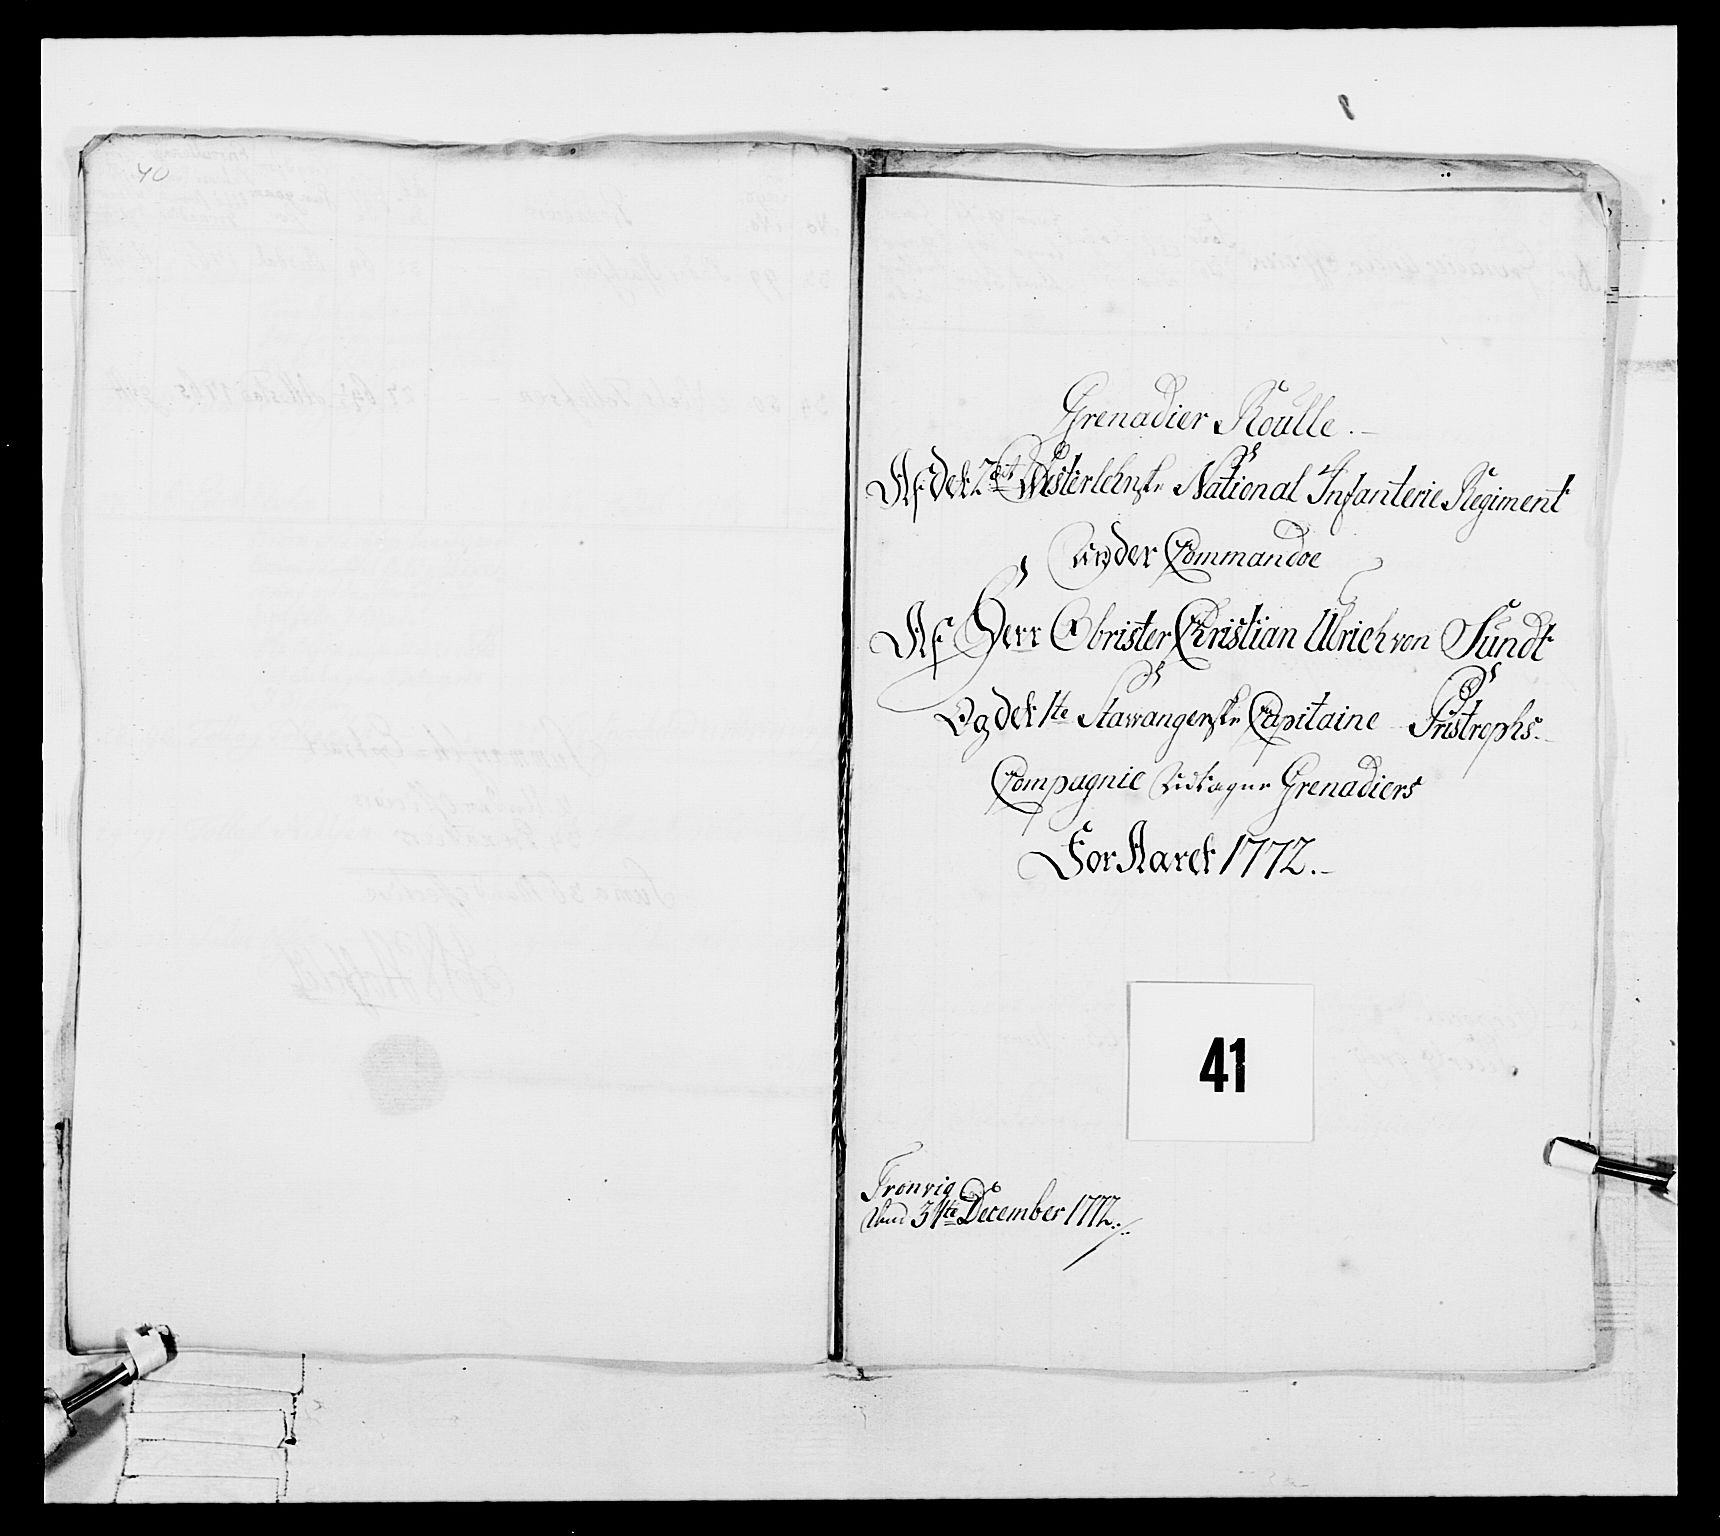 40
Grenadier Roulle.
Af det 2det Westerlehnske National Infanterie Regiment
Under Commandoe
Af Herr Obrister Christian Ulrich von Sundt
Og det 1te Stawangerske Capitaine Tristrophs
Compagnie Udtagne Grenadiers
For Aaret 1772.
41
Tronvig
den 31te December 1772.